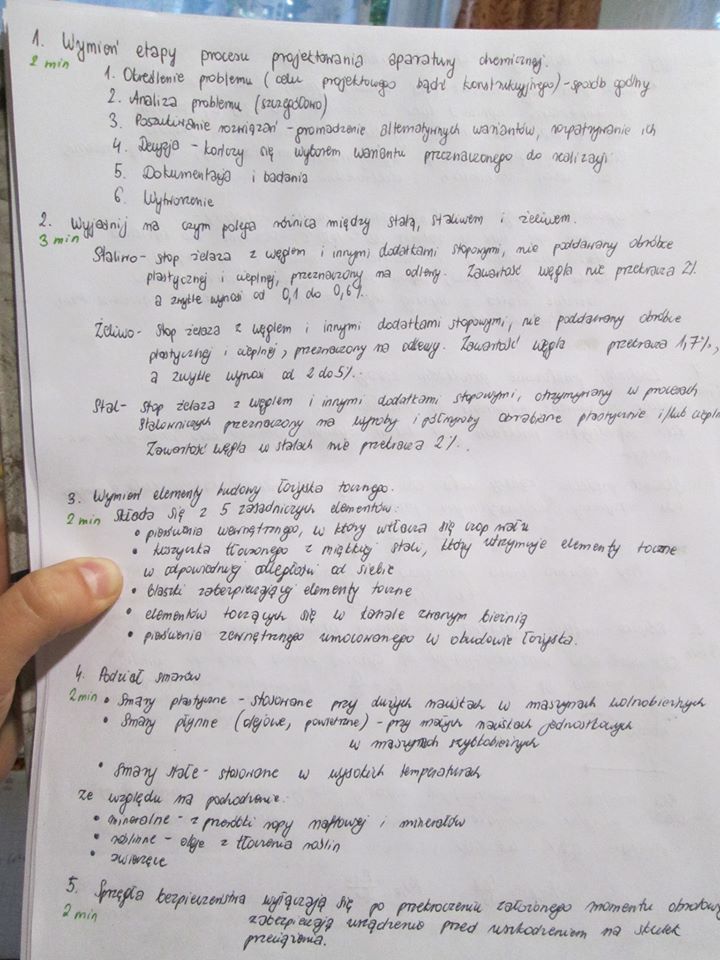 1. Wymień etapy procesu projektowania aparatury chemicznej.
2 min
1. Określenie problemu (celu projektowego bądź konstrukcyjnego) - sposób godny
2. Analiza problemu (szczegółowo)
3. Poszukiwanie rozwiązań - gromadzenie alternatywnych wariantów, rozpatrywanie ich
4. Decyzja - kończy się wyborem wariantu przeznaczonego do realizacji
5. Dokumentacja i badania
6. Wytworzenie
2. Wyjaśnij na czym polega różnica między stalą, staliwem i żeliwem.
3 min
Staliwo - stop żelaza z węglem i innymi dodatkami stopowymi, nie poddawany obróbce
plastycznej i cieplnej, przeznaczony na odlewy. Zawartość węgla nie przekracza 2%
a zwykle wynosi od 0,1 do 0,6%.
Żeliwo - stop żelaza z węglem i innymi dodatkami stopowymi, nie poddawany obróbce
plastycznej i cieplnej, przeznaczony na odlewy. Zawartość węgla przekracza 1,7%,
a zwykle wynosi od 2 do 5%.
Stal - stop żelaza z węglem i innymi dodatkami stopowymi, otrzymywany w procesach
stalowniczych przeznaczony na wyroby i półwyroby obrabiane plastycznie i/lub cieplni
Zawartość węgla w stalach nie przekracza 2%.
3. Wymień elementy budowy łożyska tocznego.
2 min Składa się z 5 zasadniczych elementów:
• pierścienia wewnętrznego, w który wtłacza się czop wału
• koszyczka tłoczonego z miękkiej stali, który utrzymuje elementy toczne
w odpowiedniej odległości od siebie
• blaszki zabezpieczającej elementy toczne
• elementów toczących się w kanale zwanym bieżnią
• pierścienia zewnętrznego umocowanego w obudowie łożyska.
4. Podział smarów
2 min • Smary plastyczne - stosowane przy dużych naciskach w maszynach wolnobieżnych
• Smary płynne (olejowe, powietrzne) - przy małych naciskach jednostkowych
w maszynach szybkobieżnych
• Smary stałe - stosowane w wysokich temperaturach
ze względu na pochodzenie:
• mineralne - z przeróbki ropy naftowej i minerałów
• roślinne - oleje z tłoczenia roślin
• zwierzęce
5. Sprzęgła bezpieczeństwa wyłączają się po przekroczeniu założonego momentu obrotowy
2 min zabezpieczają urządzenie przed uszkodzeniem na skutek
przeciążenia.